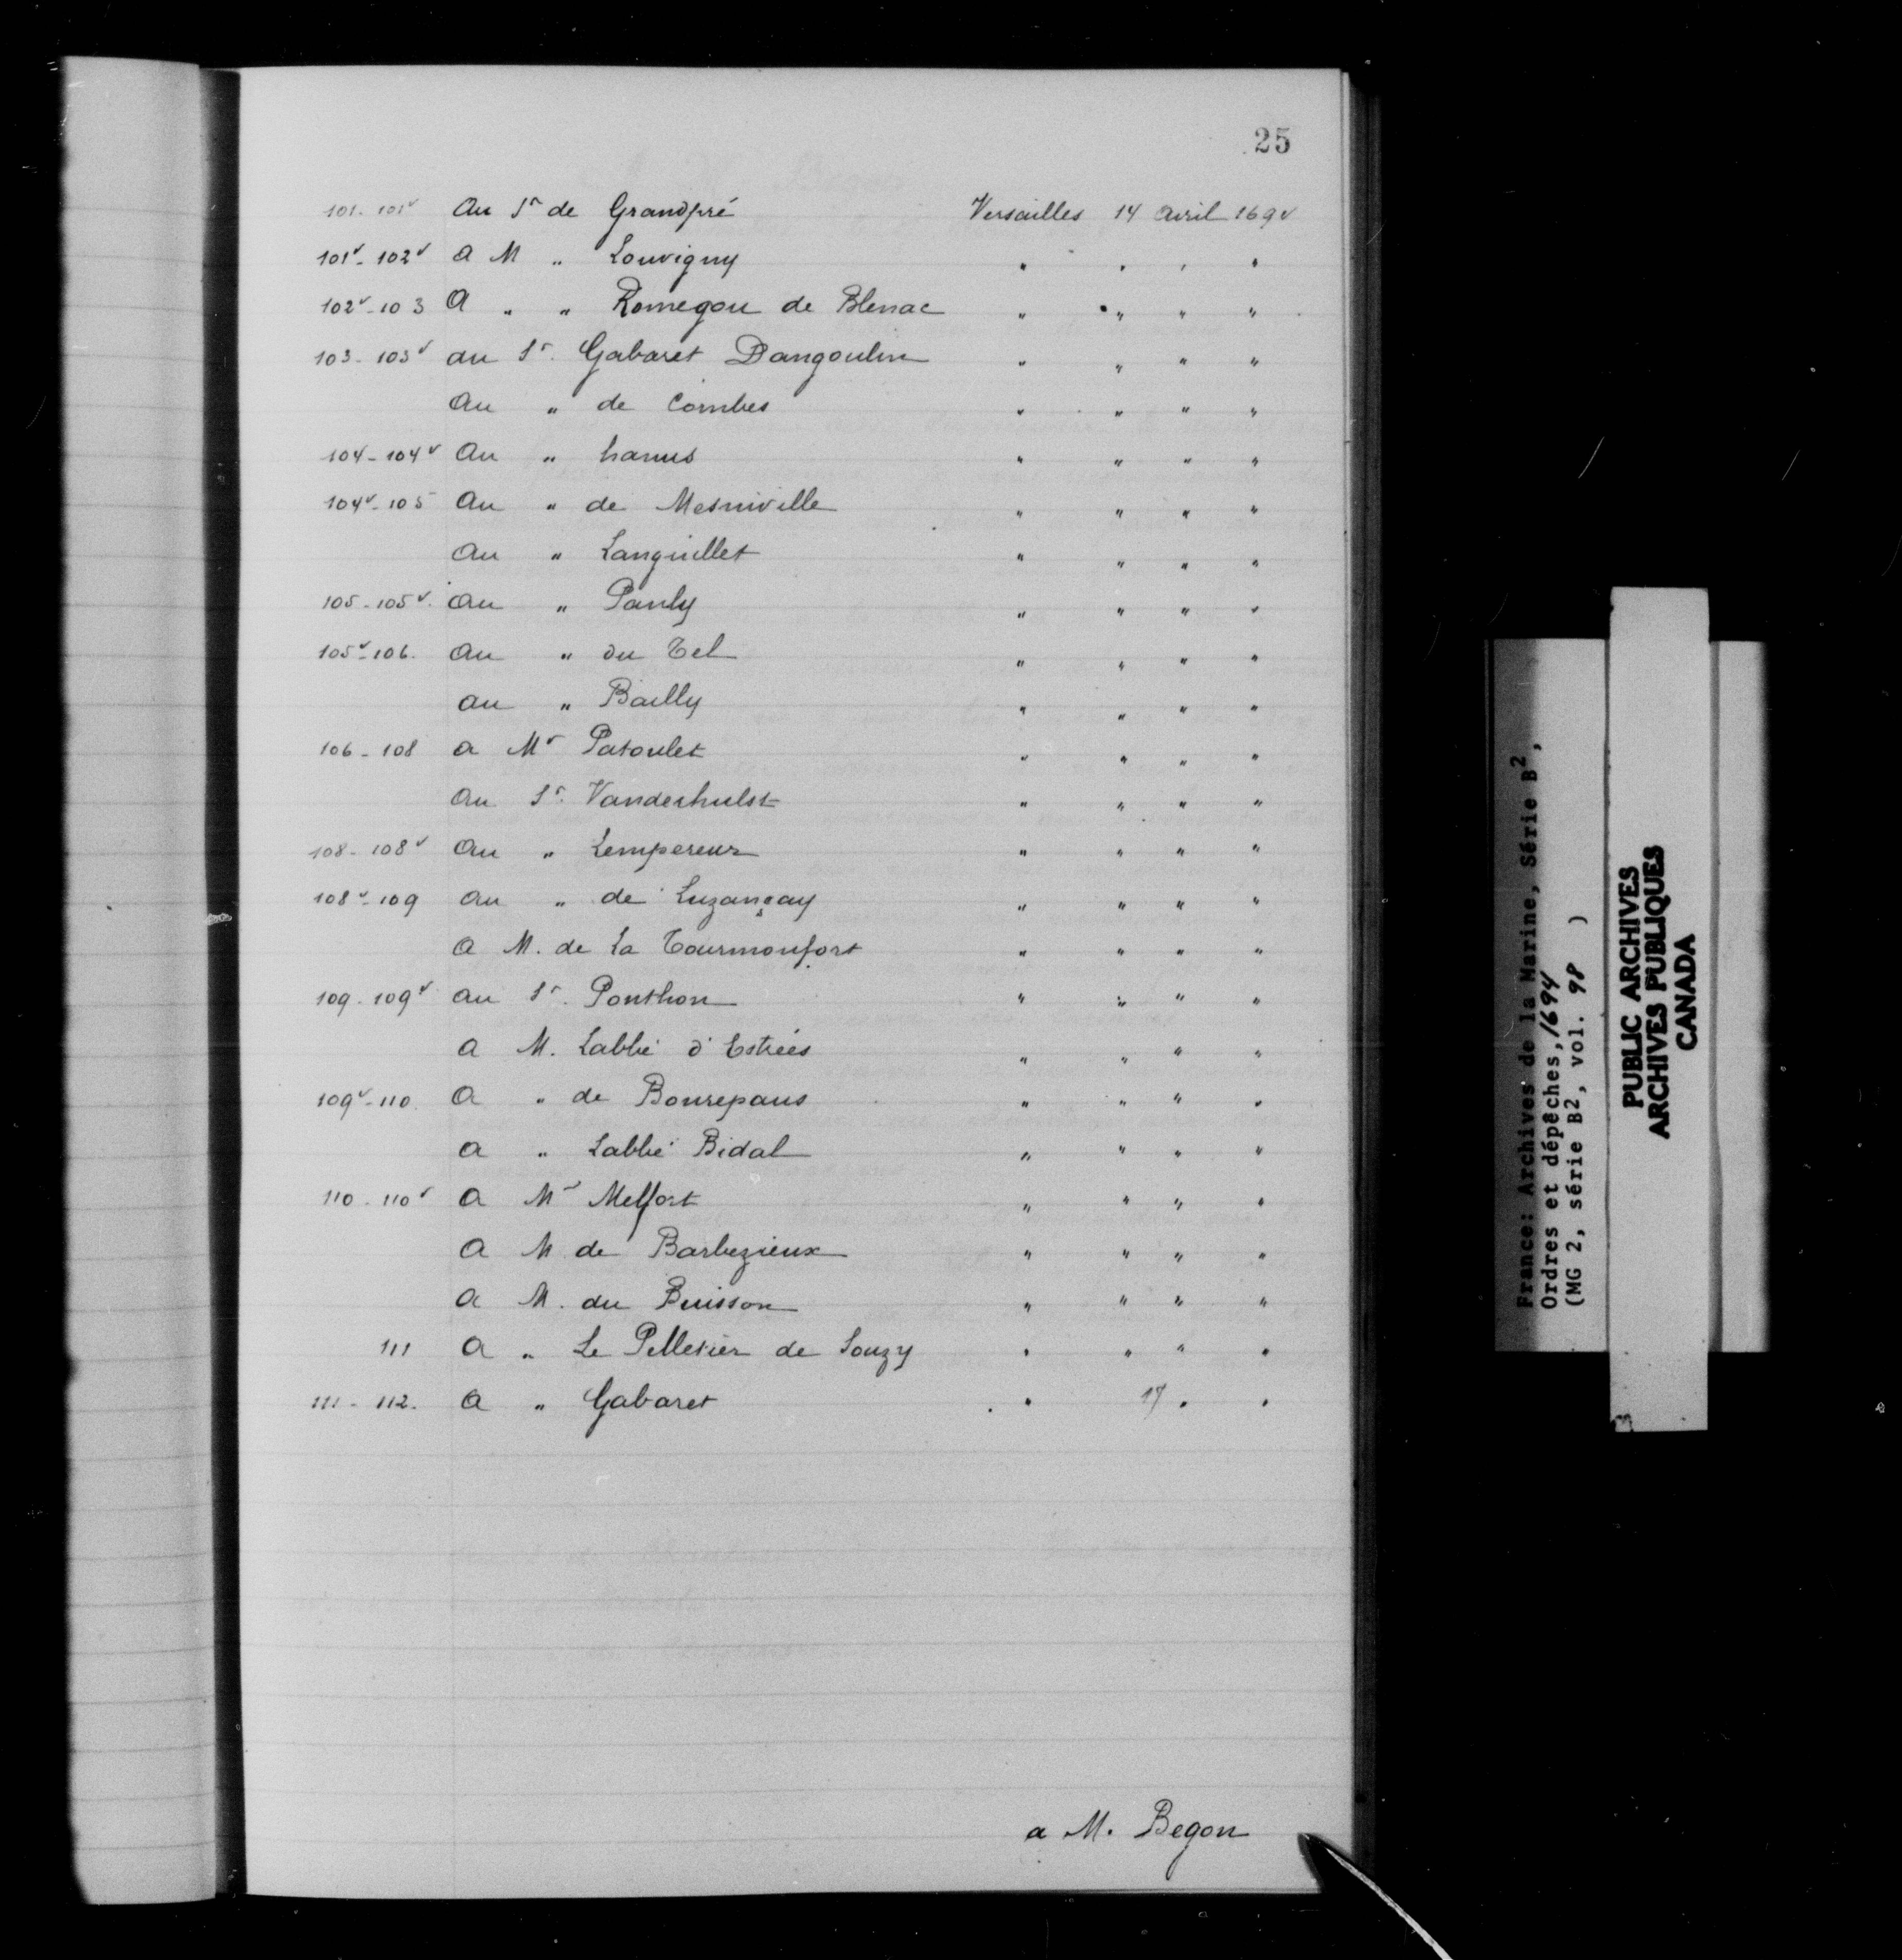 25
101-101v Au Sr de Grandpré Versailles 14 avril 1694
101v-102v A M " Louvigny " " " "
102v-103 A " " Romegou de Blenac " " " "
103-103v au Sr. Gabaret Dangoulin " " " "
Au " de Combes " " " "
104-104v Au " hanus " " " "
104v-105 Au " de Mesniville " " " "
Au " Languillet " " " "
105-105v. au " Pauly " " " "
105v-106. au " du Tel " " " "
au " Bailly " " " "
106-108 a Mr Patoulet " " " "
Au Sr. Vanderhulst " " " "
108-108v Au " Lempereur " " " "
108v-109 au " de Luzançay " " " "
A M. de La Tourmonfort " " " "
109-109v au Sr. Ponthon " " " "
A M. Labbé d'Estrées " " " "
109v-110 A " de Bonrepaus " " " "
A " Labbé Bidal " " " "
110-110v A Mr Melfort " " " "
A M de Barbezieux " " " "
A M. du Buisson " " " "
111 A " Le Pelletier de Souzy " " " "
111-112. A " Gabaret " 17 " "
a M. Begon
France: Archives de la Marine, Série B2,
Ordres et dépêches, 1694
(MG 2, série B2, vol. 98 )
PUBLIC ARCHIVES
ARCHIVES PUBLIQUES
CANADA